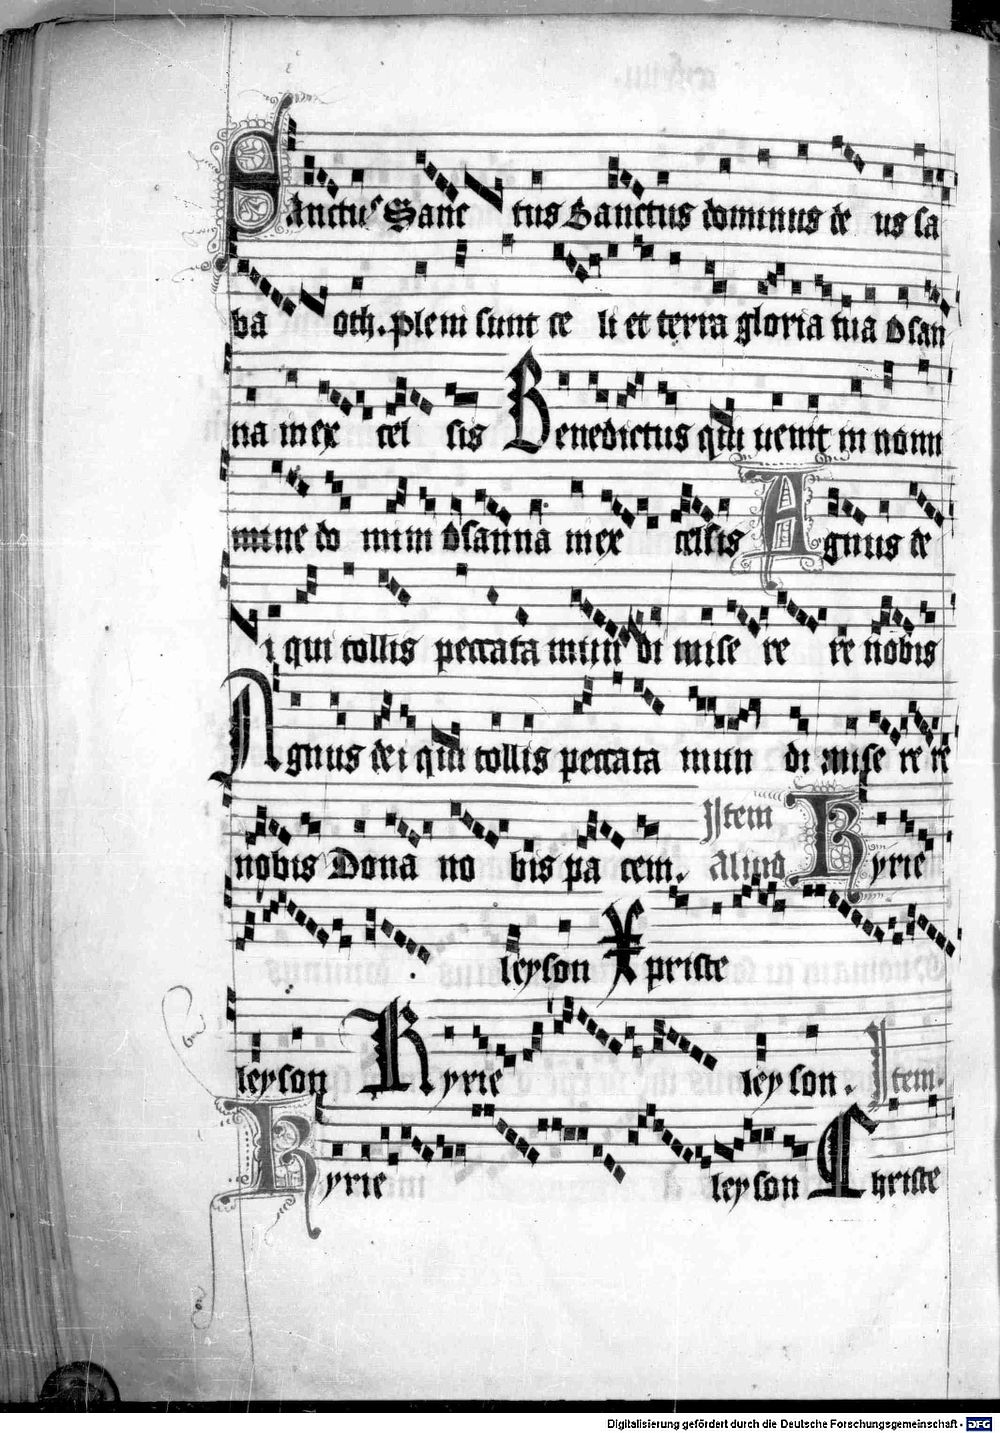 Sanctus Sanc tus Sanctus dominus de us sa
ba oth. pleni sunt ce li et terra gloria tua Osan
na in ex cel sis Benedictus qui uenit in nomi
mine do mini Osanna in ex celsis Agnus de
i qui tollis peccata mun di mise re re nobis
Agnus dei qui tollis peccata mun di mise re re
nobis Dona no bis pa cem. Item aliud Kyrie
leyson Xpriste
leyson Kyrie leyson. Item.
Kyrie leyson Christe
Digitalisierung gefördert durch die Deutsche Forschungsgemeinschaft - DFG